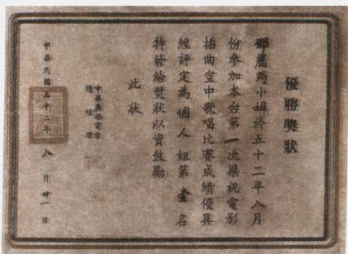 優勝獎狀
鄧麗筠小姐於五十二年八月
份參加本台第一次梁祝電影
插曲空中歌唱比賽成績優異
經評定為個人組第壹名
特發給獎狀以資鼓勵
此狀
中華廣播電台
總經理
中華民國五十二年八月廿一日